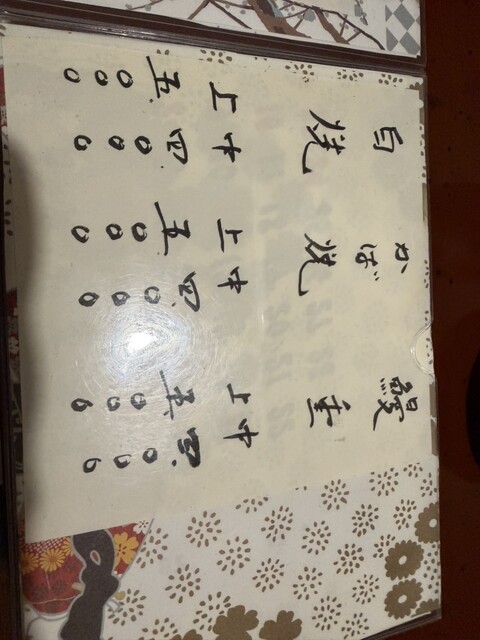 鰻重
中 四〇〇〇
上 五〇〇〇
かば焼
中 四〇〇〇
上 五〇〇〇
白焼
中 四〇〇〇
上 五〇〇〇